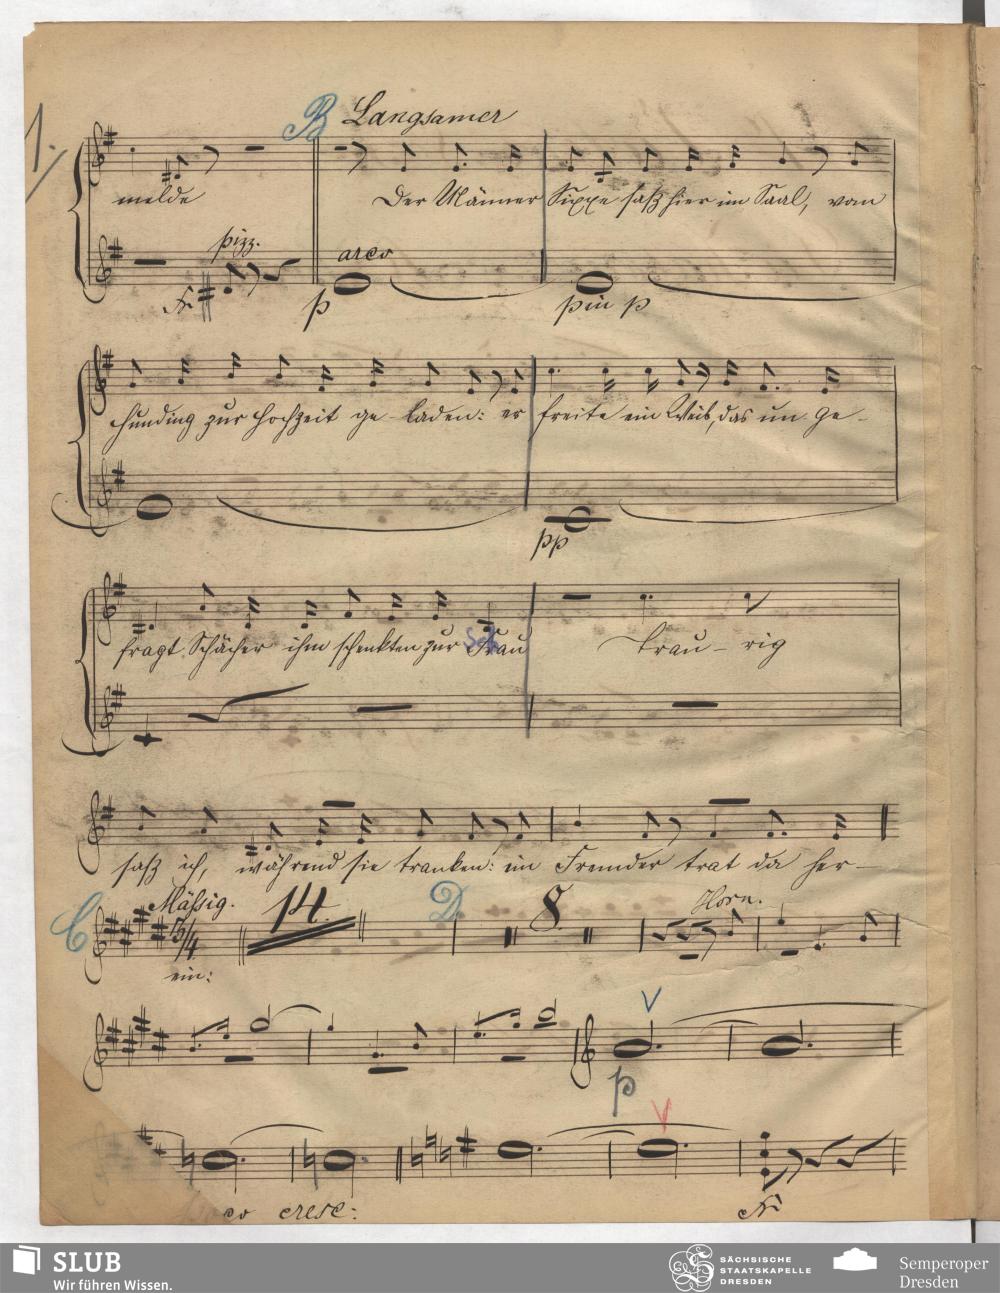 1.
B Langsamer
melde Der Männer Sippe saß hier im Saal, von
pizz. arco
p più p
Hunding zur Hochzeit ge-laden: er freite ein Weib, das un ge-
pp
fragt Schächer ihm schenkten zur Frau Trau-rig
saß ich, während sie tranken: ein Fremder trat da her-
C Mäßig. 14. D 8. Horn.
3/4
ein:
V
p
V
co cresc:
SLUB
Wir führen Wissen.
SÄCHSISCHE
STAATSKAPELLE
DRESDEN
Semperoper
Dresden